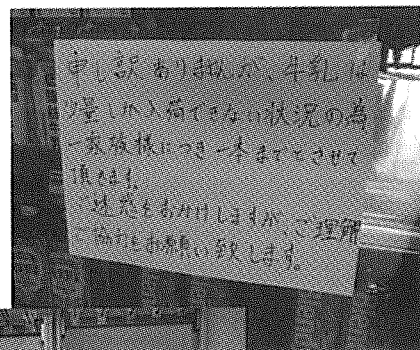 申し訳ありませんが、牛乳は
少量しか入荷できない状況の為
一家族様につき一本までとさせて
頂きます。
ご迷惑をおかけしますが、ご理解
ご協力をお願い致します。